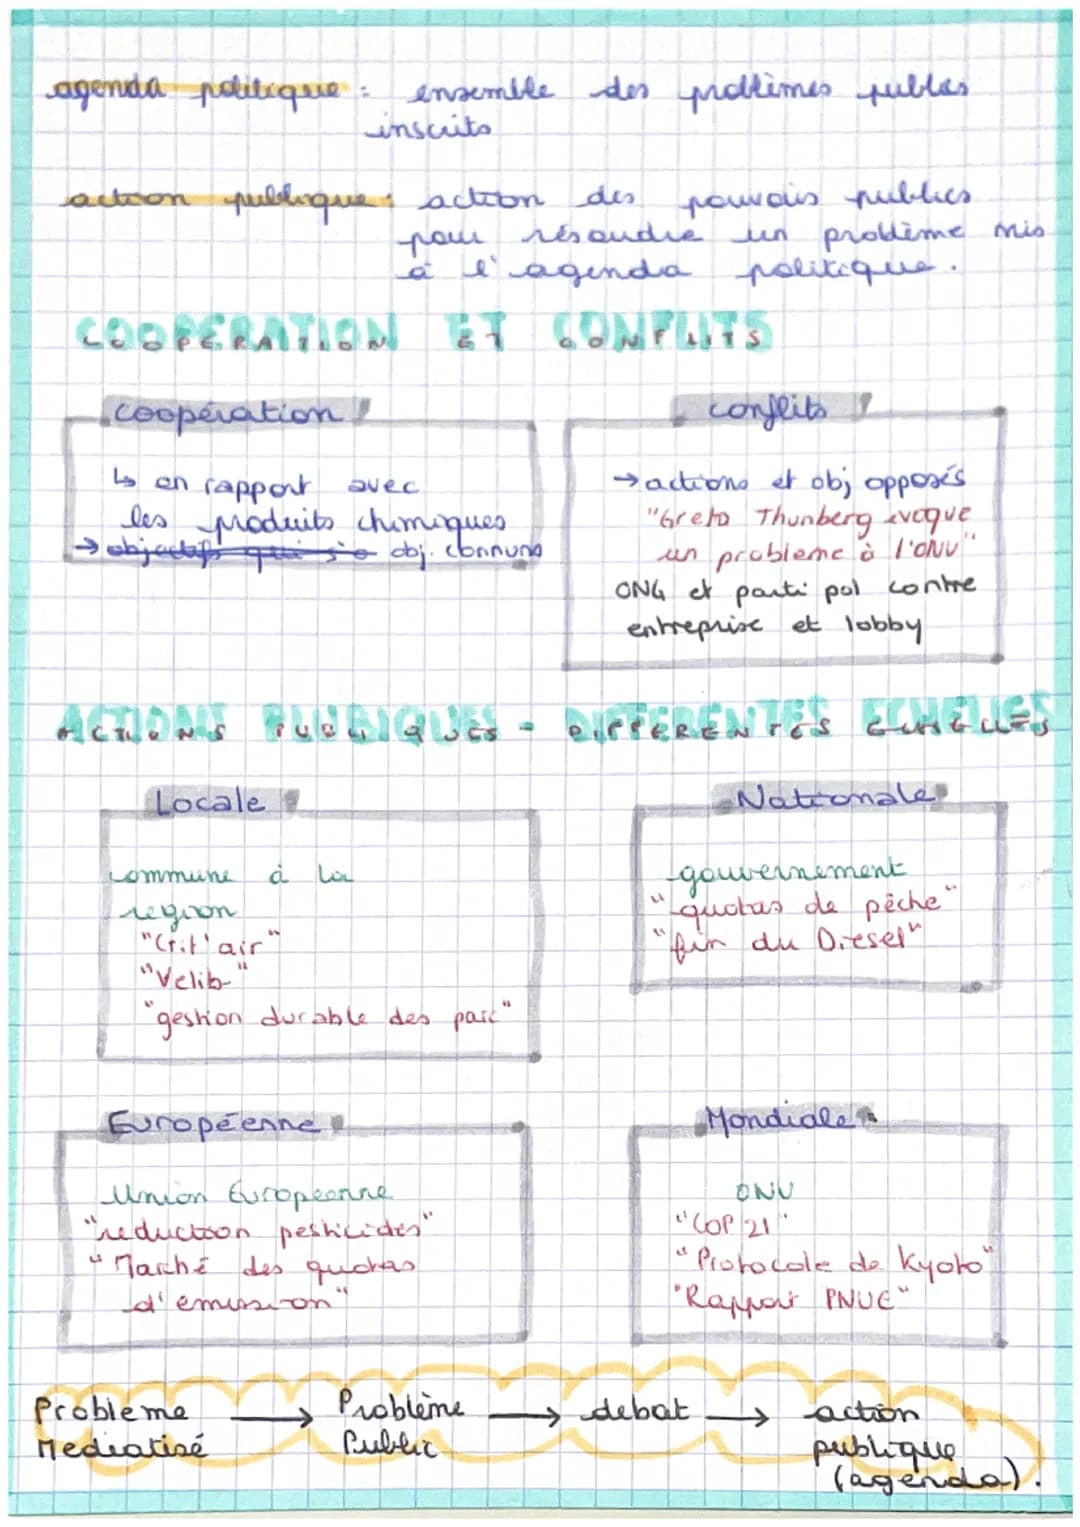 agenda politique : ensemble des problèmes publics
inscrits
action publique : action des pouvoirs publics
pour résoudre un problème mis
à l'agenda politique.
COOPERATION ET CONFLITS
coopération
↳ en rapport avec
les produits chimiques
→ objectifs qui s'o obj. communs
conflits
→ actions et obj opposés
"Greta Thunberg évoque
un probleme à l'ONU"
ONG et parti pol contre
entreprise et lobby
ACTIONS PUBLIQUES - DIFFERENTES ECHELLES
Locale
commune à la
region
"Crit'air"
"Velib"
"gestion durable des parc"
Nationale
gouvernement
"quotas de pêche"
"fin du Diesel"
Européenne
Union Européenne
"reduction pesticides"
"Marché des quotas
d'emission"
Mondiale
ONU
"COP 21"
"Protocole de Kyoto"
"Rapport PNUE"
Probleme → Problème → debat → action
Mediatisé Public publique
(agenda).